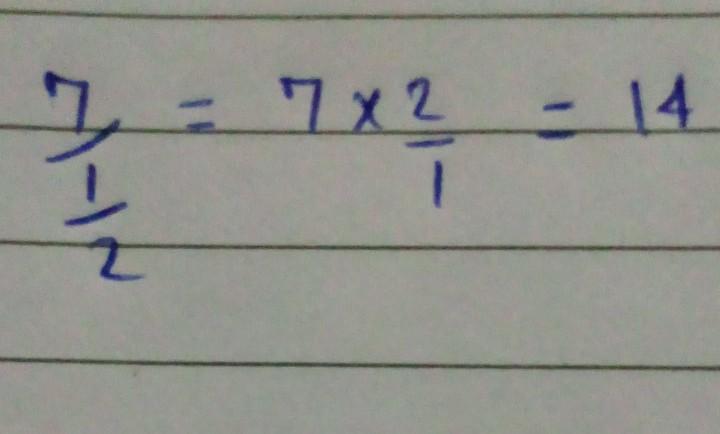 7/1/2 = 7 × 2/1 = 14